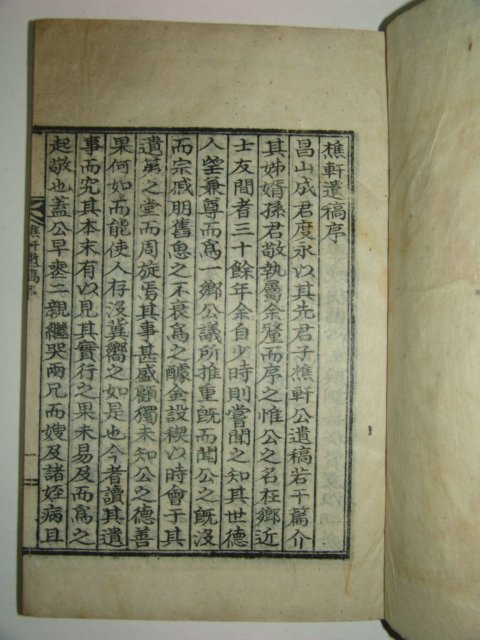 樵軒遺稿序
昌山成君度永以其先君子樵軒公遺稿若干篇介
其姊婿孫君敬執屬余釐而序之惟公之名在鄉近
士友聞者三十餘年余自少時則嘗聞之知其世德
人望兼尊而爲一鄉公議所推重旣而聞公之旣沒
而宗戚朋舊思之不衰爲之醵金設稧以時會于其
遺第之堂而周旋焉其事甚盛顧獨未知公之德善
果何如而能使人存沒冀嚮之如是也今者讀其遺
事而究其本末有以見其實行之果未易及而爲之
起敬也蓋公早喪二親繼哭兩兄而嫂及諸姪病且
樵軒遺稿序